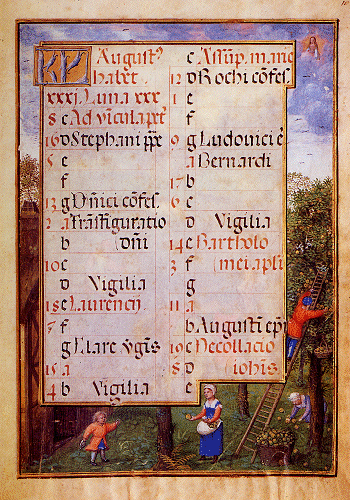 KL Augustꝰ
habet
xxxj. Luna xxx
8 c Ad vincula pet
16 d Stephani ppe
5 e
f
13 g Dñici cõfes.
2 a Trãsfiguratio
b dñi
10 c
d Vigilia
18 e Laurencij
7 f
g Clare vgĩs
15 a
4 b Vigilia
c Assũp. marie
12 d Rochi cõfes.
1 e
f
9 g Ludovici e
a Bernardi
17 b
6 c
d Vigilia
14 e Bartholo
3 f mei apli
g
11 a
b Augustĩ epi
19 c Decollacio
8 d iohis
e